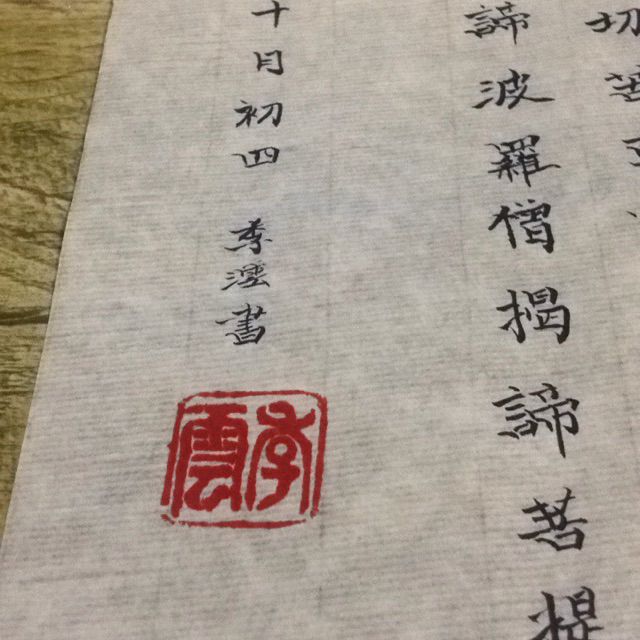 切
諦波羅僧揭諦菩提
十月初四 李 書
李雲